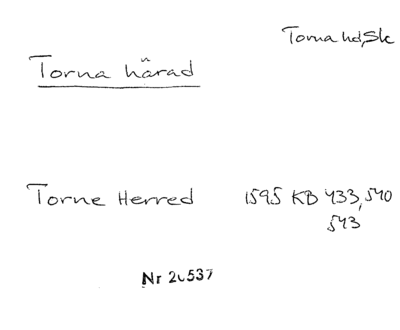 Torna hd, Sk
Torna härad
Torne Herred 1595 KB 433, 540
543
Nr 20537